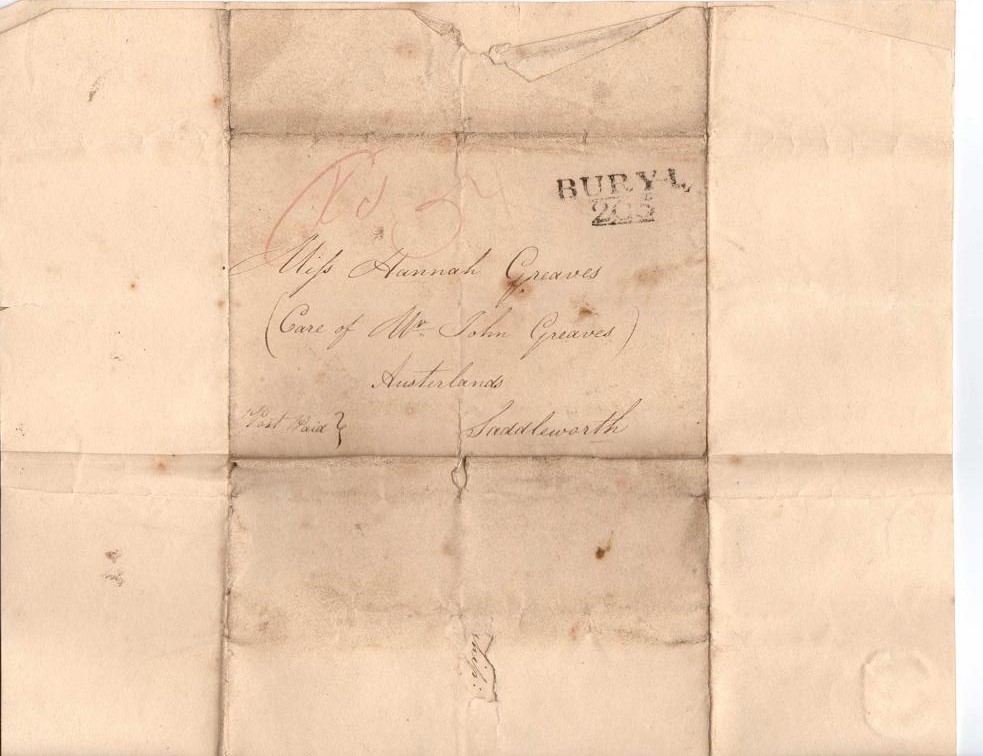 BURY-L,
205
Miss Hannah Greaves
(Care of Mr. John Greaves)
Austerlands
Post Paid
Saddleworth